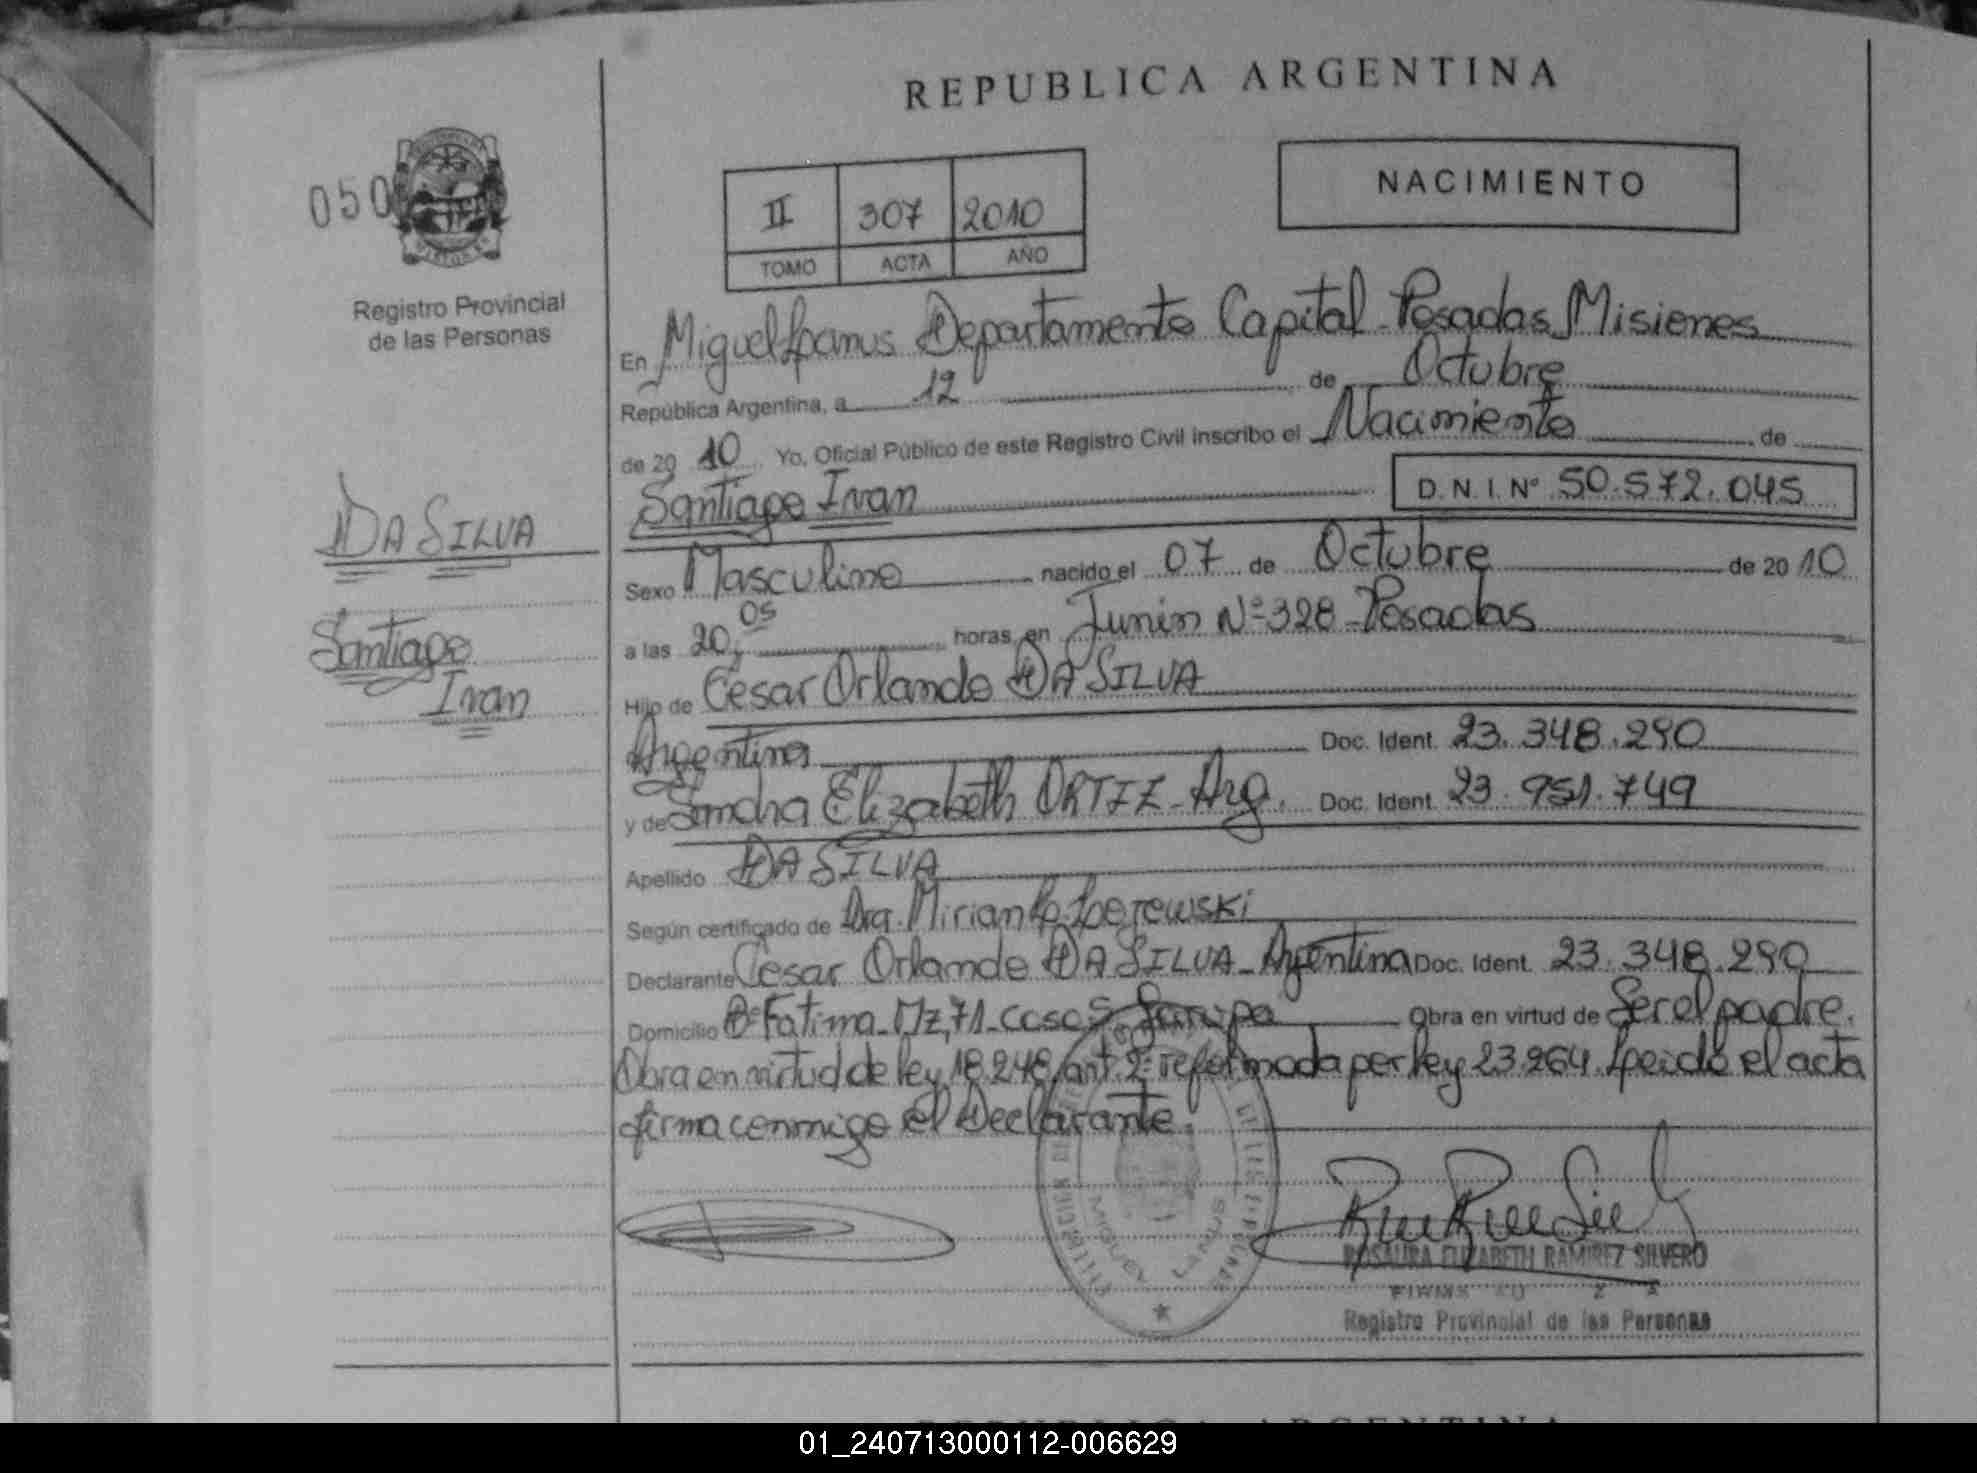 REPUBLICA ARGENTINA
050
NACIMIENTO
II 307 2010
TOMO ACTA AÑO
Registro Provincial
de las Personas
En Miguel Lanus Departamento Capital - Posadas, Misiones
República Argentina, a 12 de Octubre
de 2010 Yo, Oficial Público de este Registro Civil inscribo el Nacimiento de
Santiago Ivan D.N.I. Nº 50.572.045
DA SILVA
Santiago
Ivan
Sexo Masculino nacido el 07 de Octubre de 2010
a las 20,05 horas, en Junin Nº 328 - Posadas
Hijo de Cesar Orlando DA SILVA
Argentina Doc. Ident. 23.348.290
y de Sandra Elizabeth ORTIZ - Arg. Doc. Ident. 23.951.749
Apellido DA SILVA
Según certificado de Dra. Mirian
Declarante Cesar Orlando DA SILVA - Argentina Doc. Ident. 23.348.290
Domicilio Bº Fatima - Mz, 71 - casa 5 Garupa Obra en virtud de Ser el padre.
Obra en virtud de ley 18.248, art. 2º reformada por ley 23.264. Leido el acta
firma conmigo el Declarante.
MIGUEL LANUS
ROSAURA ELIZABETH RAMIREZ SILVERO
Registro Provincial de las Personas
REPUBLICA ARGENTINA
01_240713000112-006629